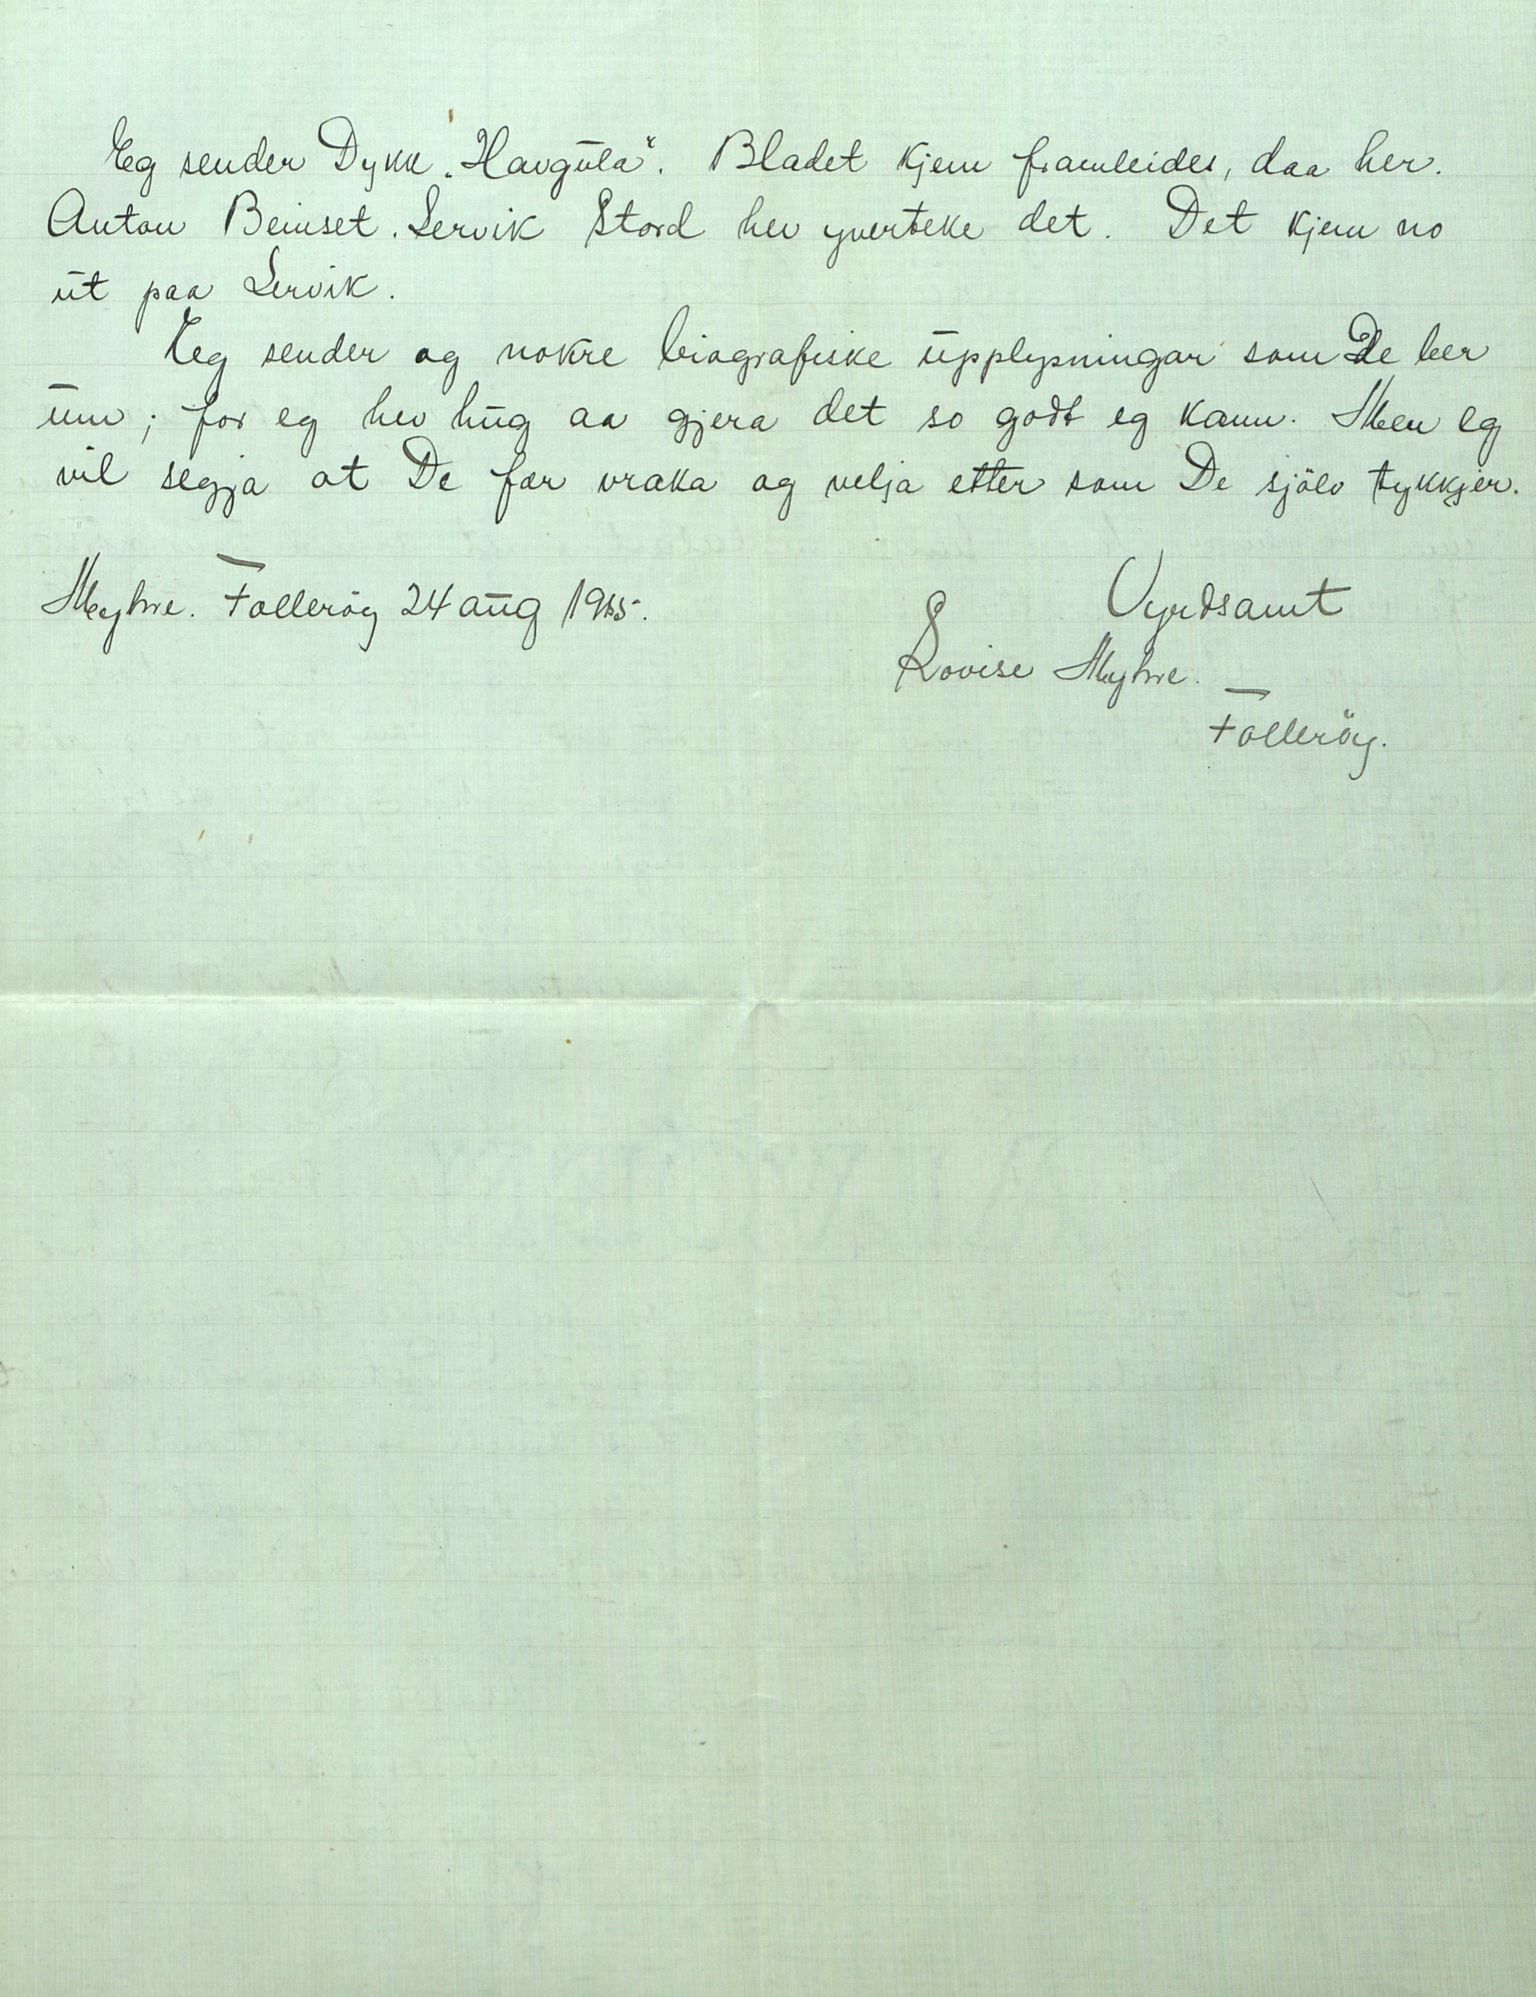 Eg sender Dykk „Havgula“. Bladet kjem framleides, daa her.
Anton Beinset. Lervik Stord hev yverteke det. Det kjem no
ut paa Lervik.
Eg sender og nokre biografiske upplysningar som De ber
um; for eg hev hug aa gjera det so godt eg kann. Men eg
vil segja at De fær vraka og velja etter som De sjölv tykkjer.
Myhre. Tolleröy 24 aug 1915.
Vyrdsamt
Lovise Myhre.
Tolleröy.